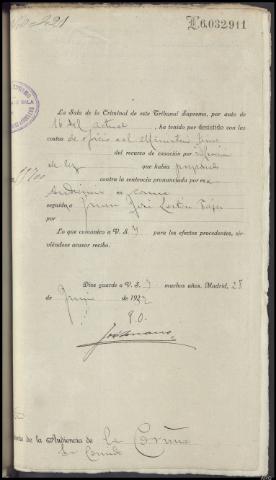 L6.032.911
La Sala de lo Criminal de este Tribunal Supremo, por auto de
16 del actual, ha tenido por desistido con las
costas de oficio al Ministerio Fiscal
del recurso de casación por infracción
de ley que había preparado
contra la sentencia pronunciada por esa
Audiencia en causa
seguida a Juan José
por
Lo que comunico a V. S. I para los efectos procedentes, sir-
viéndose acusar recibo.
Dios guarde a V. S. I muchos años. Madrid, 28
de Junio de 192
P.O.
de la Audiencia de La Coruña